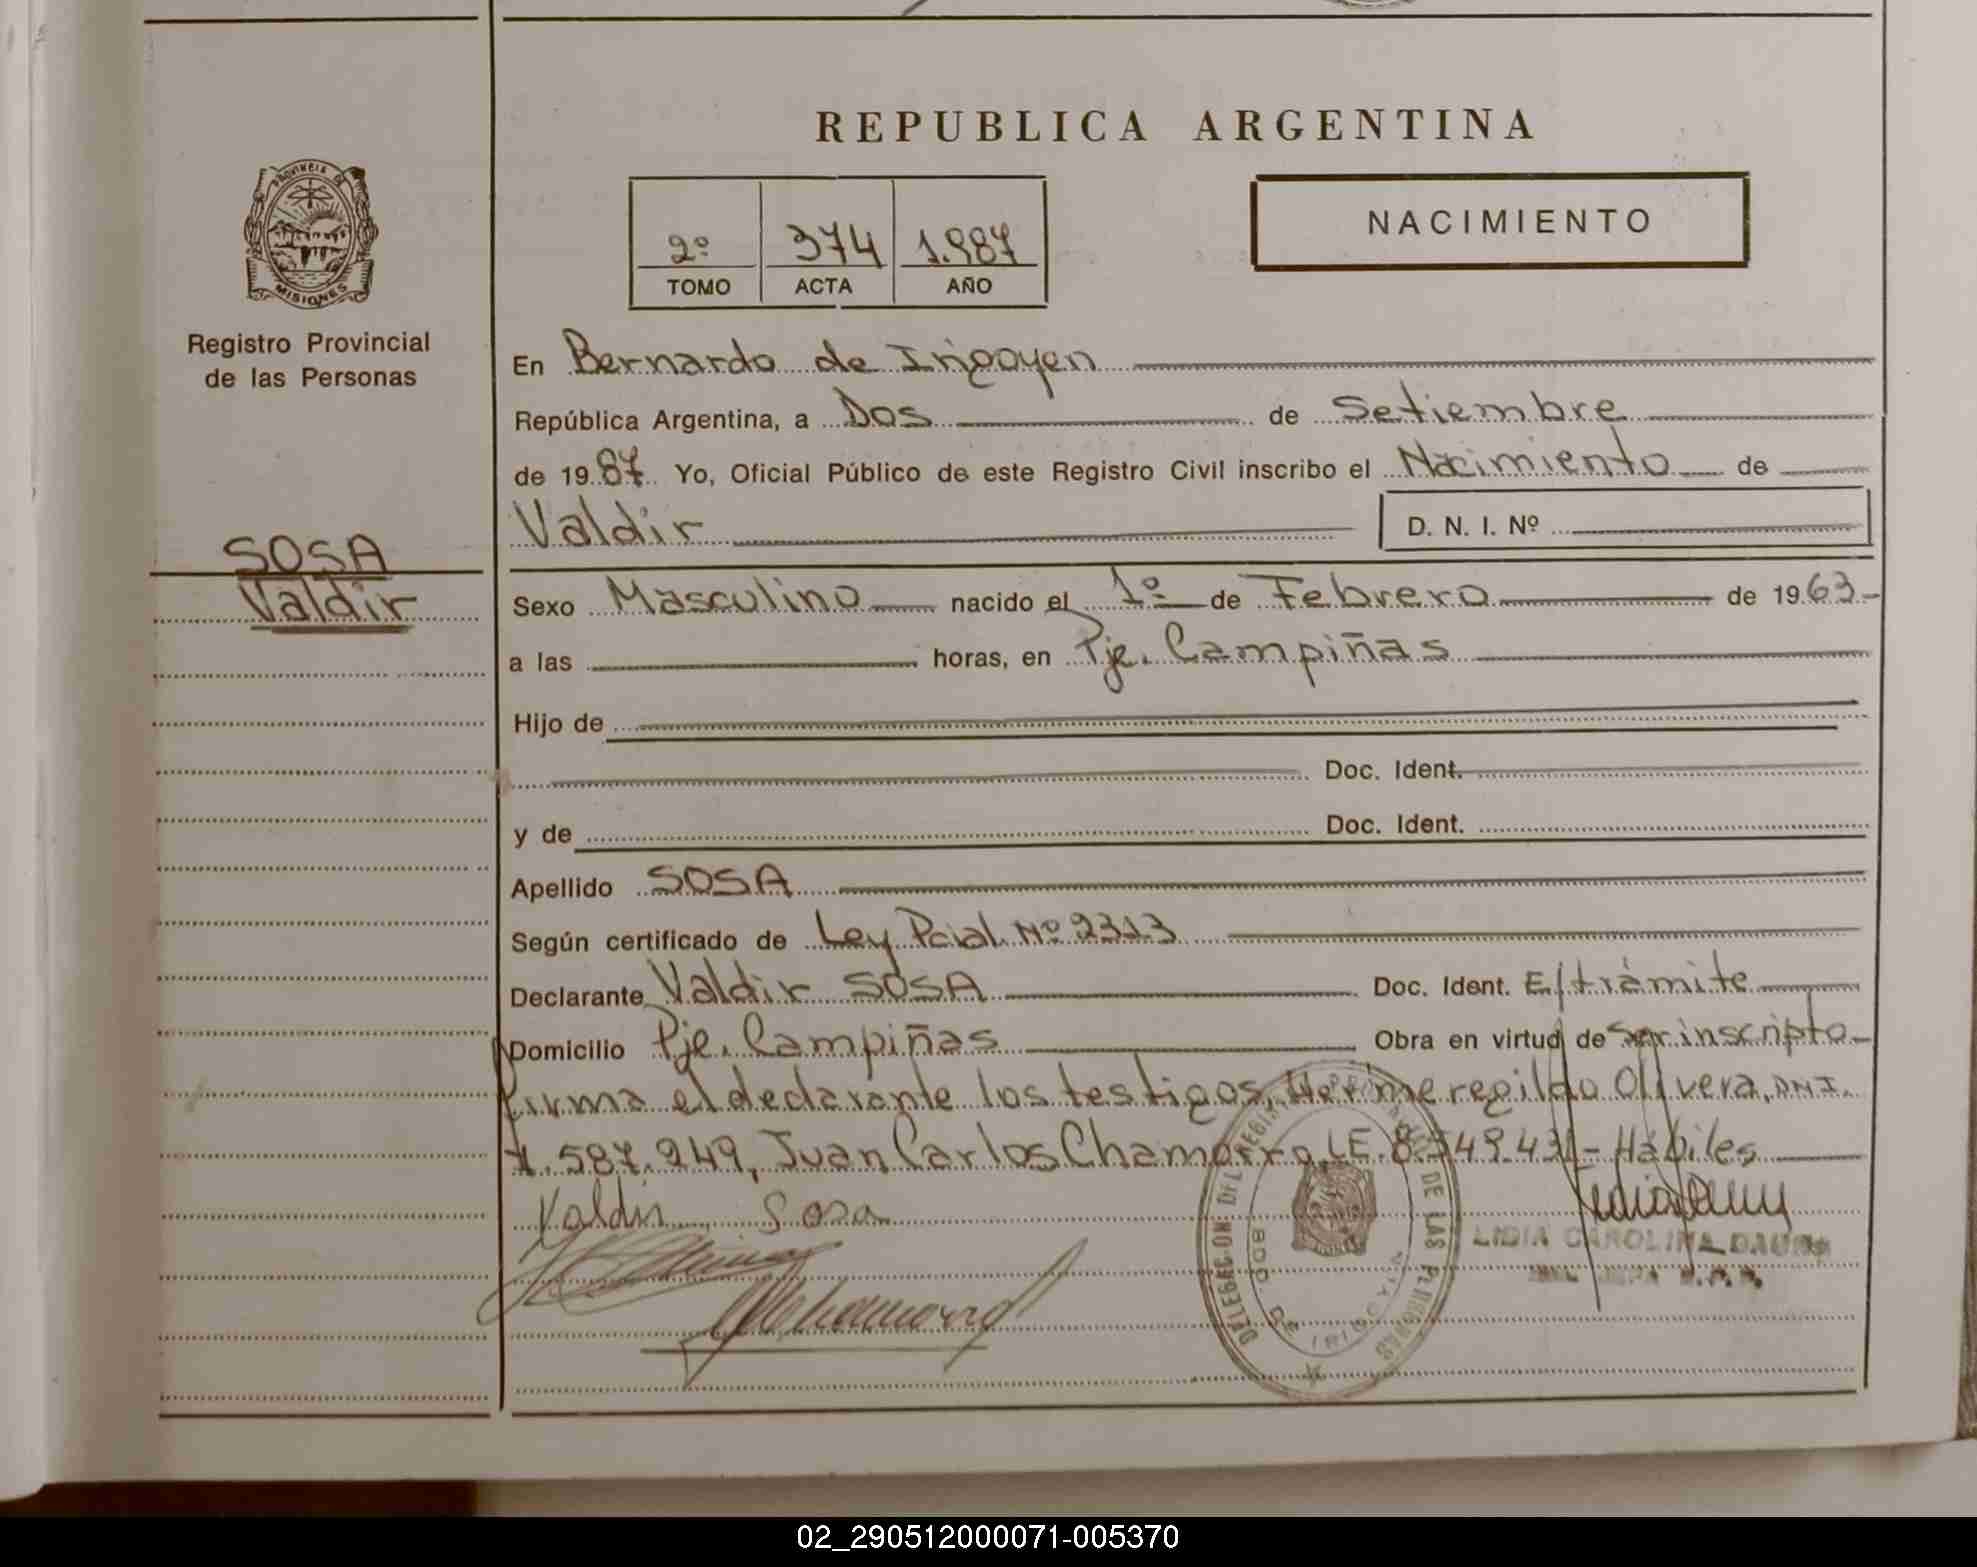 REPUBLICA ARGENTINA
PROVINCIA DE
MISIONES
Registro Provincial
de las Personas
2º 374 1.987
TOMO ACTA AÑO
NACIMIENTO
En Bernardo de Irigoyen
República Argentina, a Dos de Setiembre
de 1987 Yo, Oficial Público de este Registro Civil inscribo el Nacimiento de
Valdir D. N. I. Nº
SOSA
Valdir
Sexo Masculino nacido el 1º de Febrero de 1963-
a las horas, en Pje. Campiñas
Hijo de
Doc. Ident.
y de Doc. Ident.
Apellido SOSA
Según certificado de Ley Pcial. Nº 2313
Declarante Valdir SOSA Doc. Ident. E/trámite
Domicilio Pje. Campiñas Obra en virtud de ser inscripto-
firma el declarante los testigos, Hermeregildo Olivera, DNI.
7.587.249, Juan Carlos Chamorro LE. 8.549.431- Hábiles
Valdir Sosa
LIDIA CAROLINA
DELEGACION DEL REGISTRO PROVINCIAL DE LAS PERSONAS
BDO. DE IRIGOYEN
02_290512000071-005370